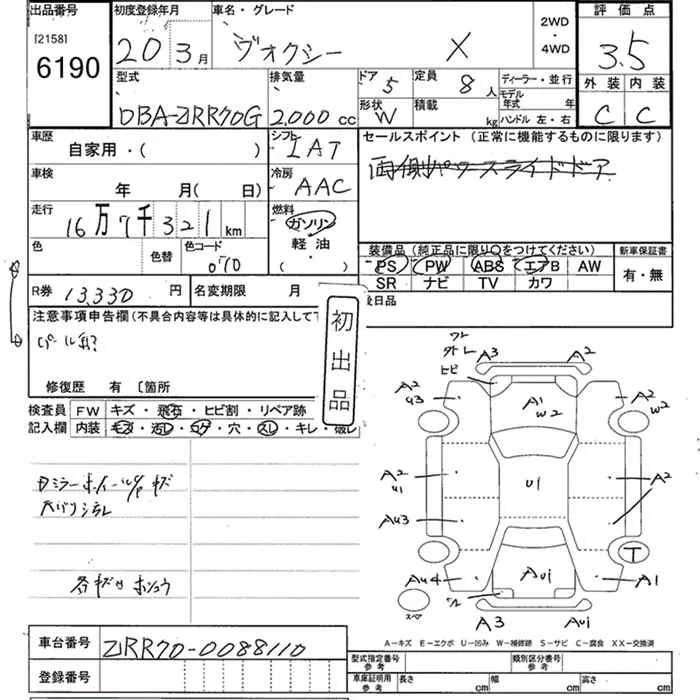 出品番号
[2158]
6190
初度登録年月
20 3月
車名・グレード
ヴォクシー X
2WD
・
4WD
評価点
3.5
外装 内装
C C
型式
DBA-ZRR70G
排気量
2,000 cc
ドア
5
定員
8人
形状
W
積載
kg
ディーラー・並行
モデル
年式 年
ハンドル 左・右
車歴
自家用・( )
シフト
IAT
車検
年 月( 日)
冷房
AAC
走行
16万7千321km
燃料
ガソリン
軽油
( ・ )
色
色替
色コード
070
セールスポイント (正常に機能するものに限ります)
両側パワースライドドア
装備品 (純正品に限り○をつけてください)
PS PW ABS エアB AW
SR ナビ TV カワ
新車保証書
有・無
R券 13,330 円
名変期限 月
後日品
注意事項申告欄(不具合内容等は具体的に記入して下
初出品
修復歴 有 [箇所
検査員
記入欄
FW キズ・飛石・ヒビ割・リペア跡
内装 キズ・汚レ・コゲ・穴・スレ・キレ・破レ
各キズ
車台番号
ZRR70-0088110
登録番号
A3 A2
A2
U3
A1
W2
A2
W2
A2
U1
U1
A2
AU3
A2
T
AU4
AU1
A1
スペア
A3
AU1
A-キズ E-エクボ U-凹み W-補修跡 S-サビ C-腐食 XX-交換済
型式指定番号
参考
類別区分番号
参考
車庫証明用
参考
長さ cm
幅 cm
高さ cm